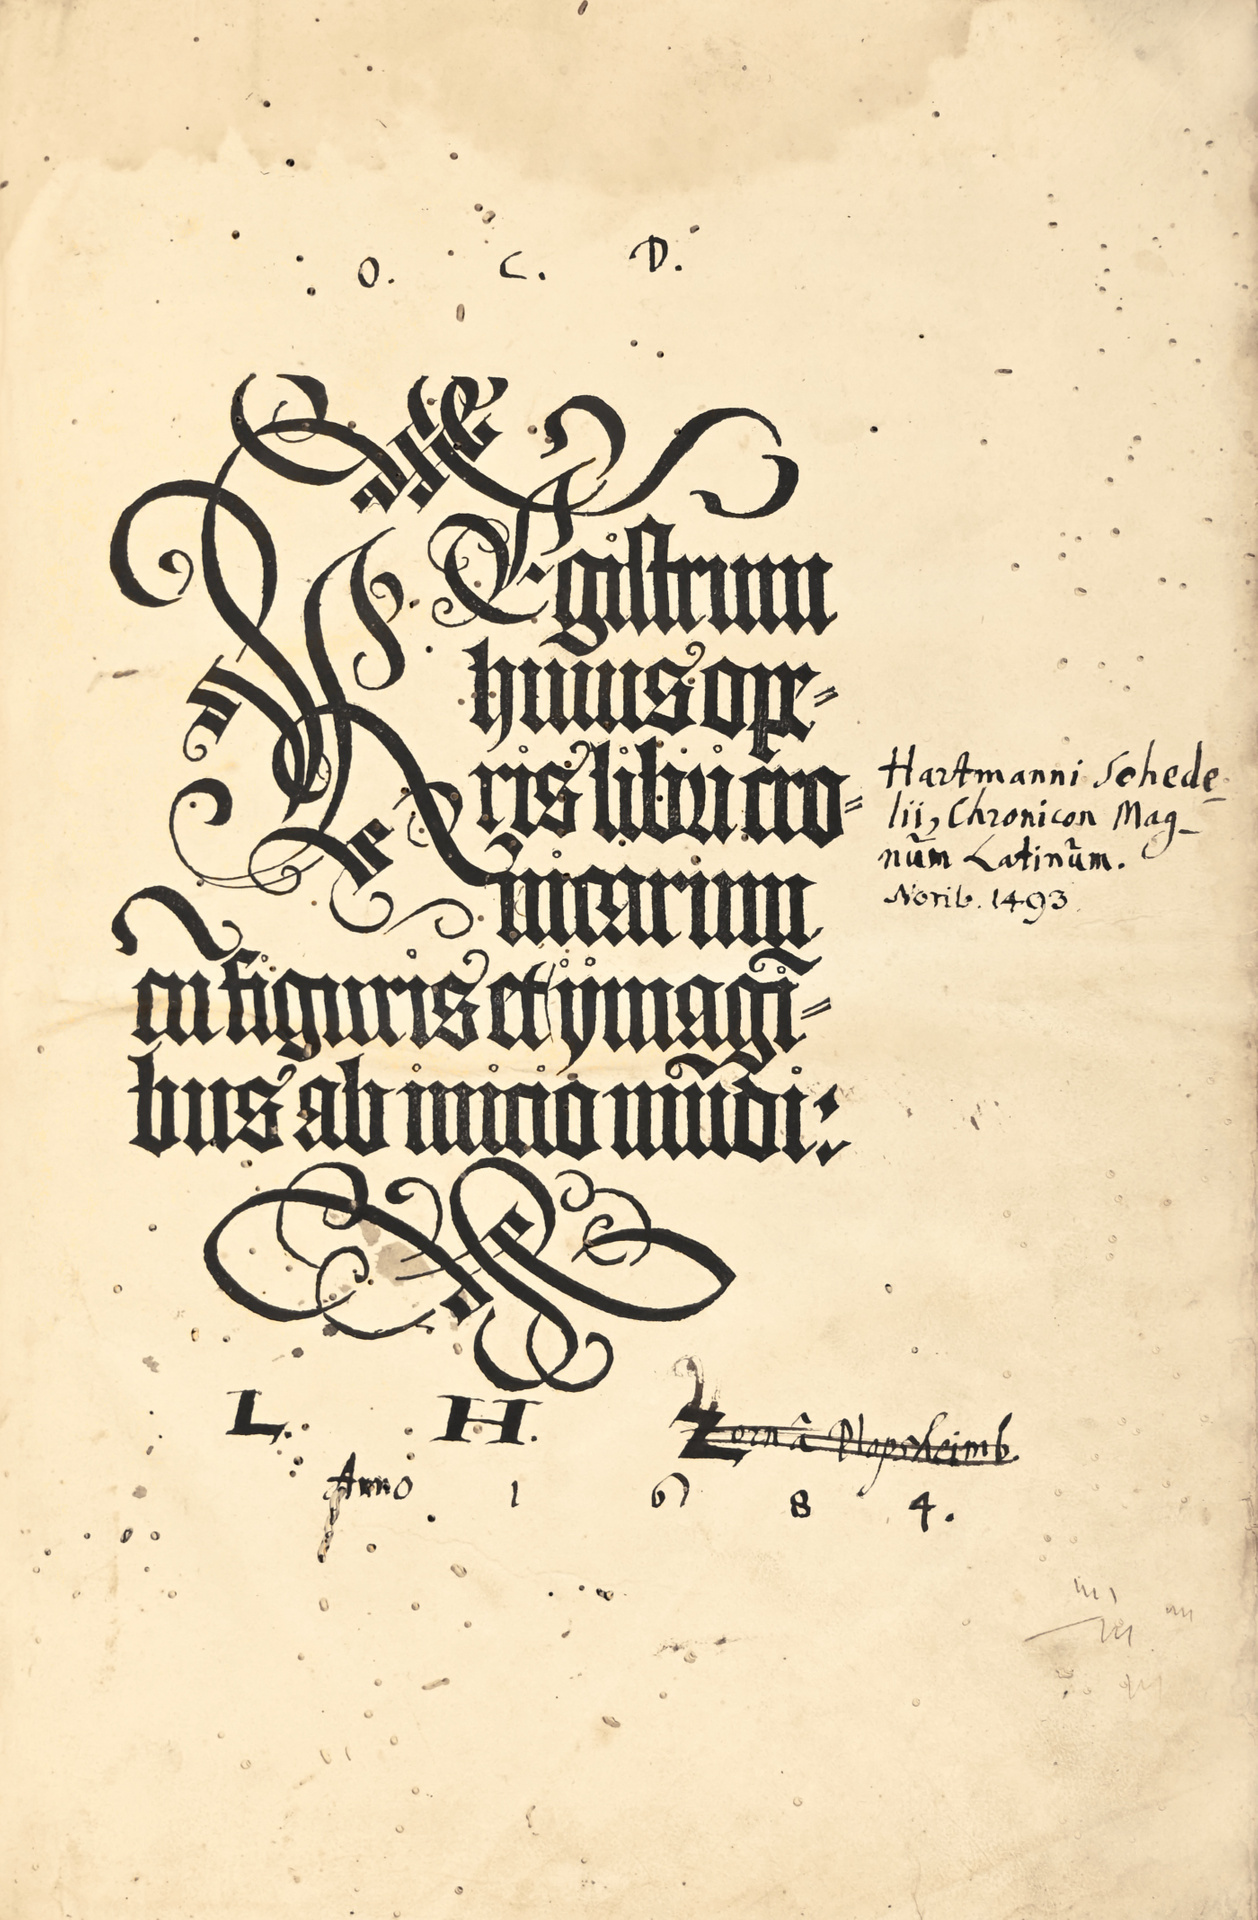 O. C. D.
REgistrum
huius ope=
ris libri cro=
nicarum
cũ figuris et ymagĩ=
bus ab inicio mũdi:
Hartmanni Schede-
lii, Chronicon Mag-
nŭm Latinŭm.
Norib. 1493
L. H. Zorn â Plopsheimb
Anno 1 6 8 4.